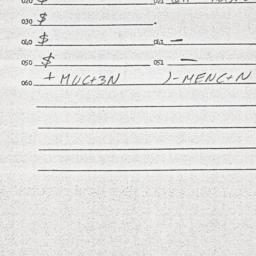 020 $
030 $ .
040 $ 041 —
050 $ 051 —
060 + MUC+3N )-MENC+N